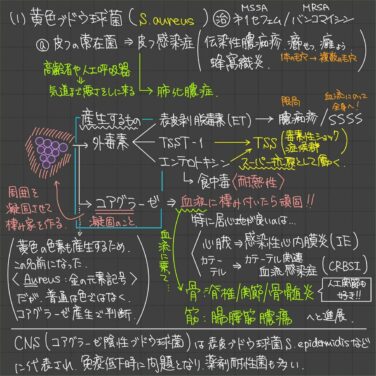 (1) 黄色ブドウ球菌 (S.aureus) 治 ネイセフェム / バンコマイシン
MSSA MRSA
① 皮フの常在菌 ⇒ 皮フ感染症 (伝染性膿痂疹、癤せつ、癰よう
蜂窩織炎
1本の毛穴 → 複数の毛穴
高齢者や人工呼吸器
気道まで厳さしに来る → 肺化膿症.
産生するもの
・外毒素
表皮剥脱毒素(ET) → 膿痂疹 / SSSS
限局 血流にのって全身へ!
TSST-1 → TSS (毒素性ショック症候群
エンテロトキシン スーパー抗原として働く.
→ 食中毒〈耐熱性〉
・コアグラーゼ ⇒ 血流に棲み付いたら頑固!!
凝固のこと
周囲を
凝固させて
棲み家を作る.
血流に乗って…
特に居心地が良いのは…
心臓 ⇒ 感染性心内膜炎 (IE)
カテーテル → カテーテル関連
血流感染症 (CRBSI)
骨:脊椎/関節/骨髄炎
人工関節も好き!!
筋:腸腰筋膿瘍 へと進展.
黄色の色素を産生するため、
この名前になった.
〈Aureus:金の元素記号〉
だが、普通は色ではなく、
コアグラーゼ産生で判断
CNS (コアグラーゼ陰性ブドウ球菌) は表皮ブドウ球菌 S.epidomidisなど
に代表され、免疫低下時に問題となり、薬剤耐性菌も多い.